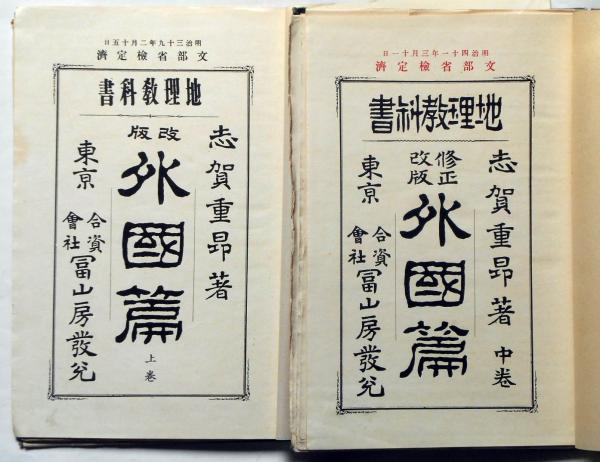 明治三十九年二月十五日
文部省檢定濟
地理教科書
志賀重昂著
改版
外國篇
上卷
東京
合資會社冨山房發兌
明治四十一年三月十一日
文部省檢定濟
地理教科書
志賀重昂著
中卷
修正改版
外國篇
東京
合資會社冨山房發兌